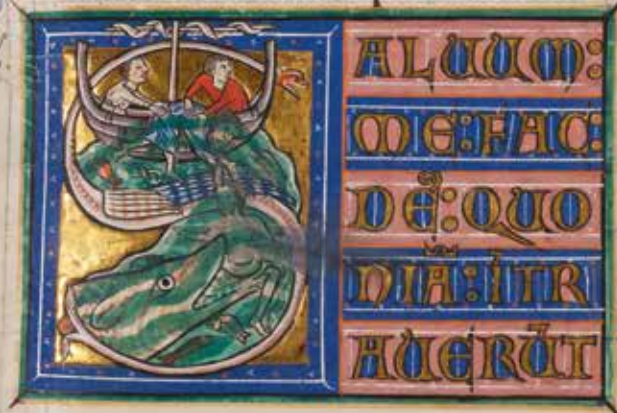 SALUUM:
ME:FAC:
DEꝰ:QUO
NIĀ:ĪTR
AUERŪT